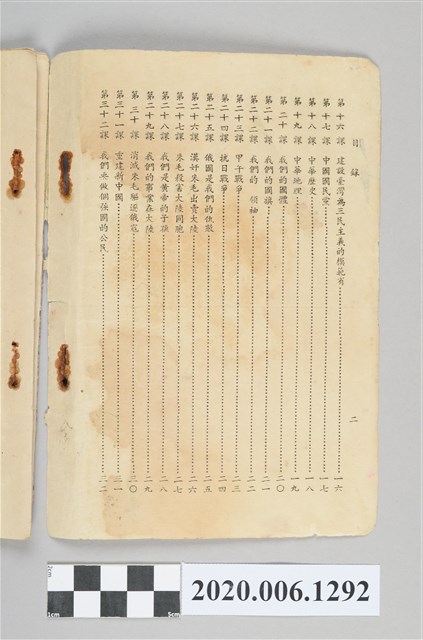 目錄
第十六課 建設臺灣為三民主義的模範省 一六
第十七課 中國國民黨 一七
第十八課 中華歷史 一八
第十九課 中華地理 一九
第二十課 我們的國體 二〇
第二十一課 我們的國旗 二一
第二十二課 我們的領袖 二二
第二十三課 甲午戰爭 二三
第二十四課 抗日戰爭 二四
第二十五課 俄國是我們的仇敵 二五
第二十六課 漢奸朱毛出賣大陸 二六
第二十七課 朱毛殘害大陸同胞 二七
第二十八課 我們是黃帝的子孫 二八
第二十九課 我們的事業在大陸 二九
第三十課 消滅朱毛驅逐俄寇 三〇
第三十一課 重建新中國 三一
第三十二課 我們要做個強國的公民 三二
二
2cm
1cm
5cm
2020.006.1292